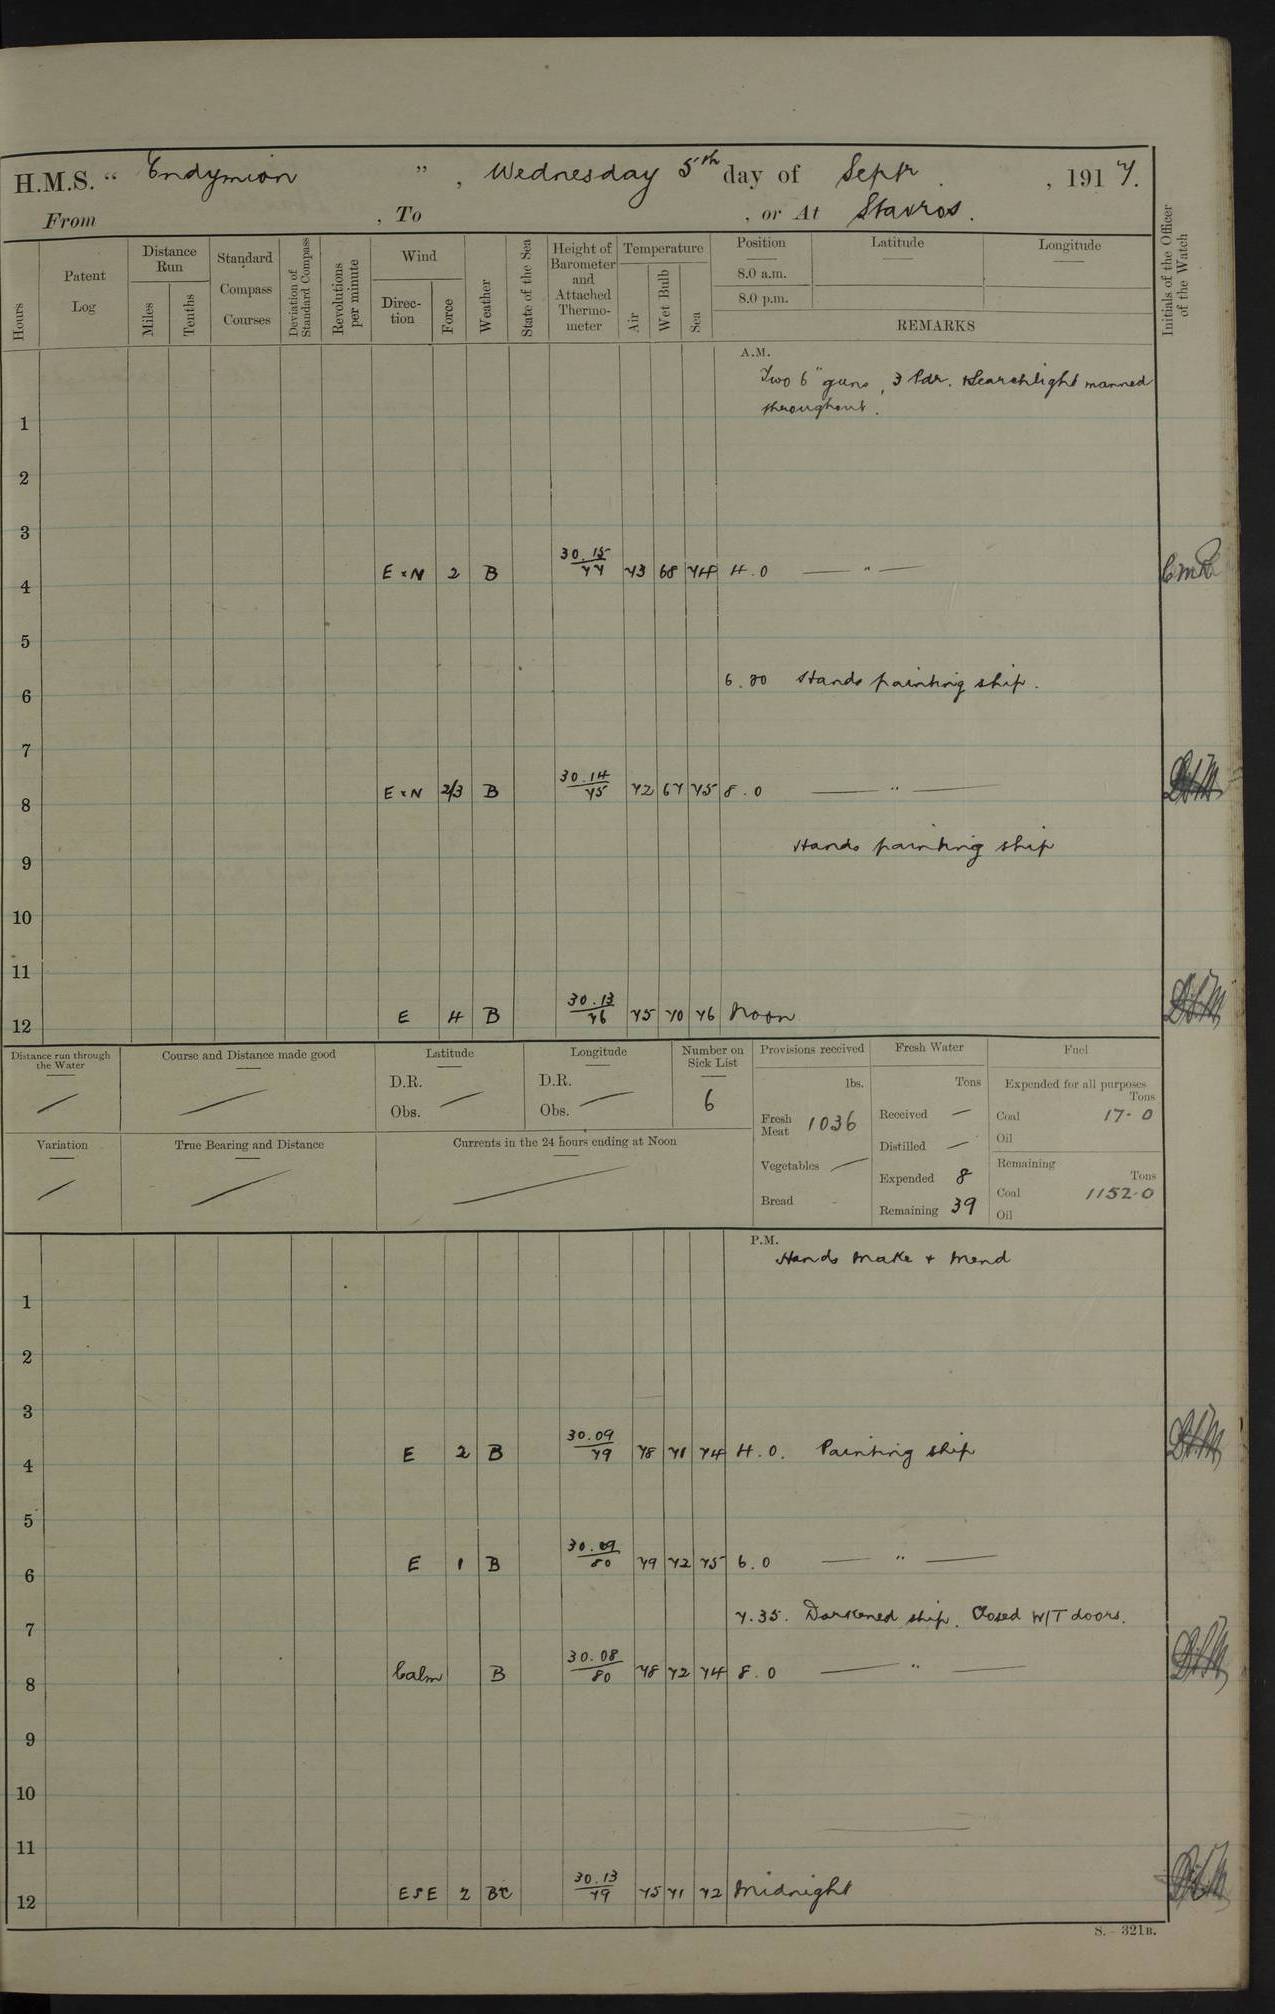 H.M.S. " Endymion ", Wednesday 5th day of Septr. , 1917.
From , To , or At Stavros.
Hours
Patent Log
Distance Run
Miles
Tenths
Standard Compass Courses
Deviation of Standard Compass
Revolutions per minute
Wind
Direction
Force
Weather
State of the Sea
Height of Barometer and Attached Thermometer
Temperature
Air
Wet Bulb
Sea
Position
8.0 a.m.
8.0 p.m.
Latitude
Longitude
REMARKS
Initials of the Officer of the Watch
A.M.
Two 6" guns, 3 Pdr. & Searchlight manned
throughout.
1
2
3
4 E x N 2 B 30.15/77 73 68 74 4.0 — " —
5
6 6.30 Hands painting ship.
7
8 E x N 2/3 B 30.14/75 72 67 75 8.0 — " —
9 Hands painting ship
10
11
12 E 4 B 30.13/76 75 70 76 Noon
Distance run through the Water
Course and Distance made good
Latitude
D.R.
Obs.
Longitude
D.R.
Obs.
Number on Sick List
6
Variation
True Bearing and Distance
Currents in the 24 hours ending at Noon
Provisions received
lbs.
Fresh Meat 1036
Vegetables —
Bread
Fresh Water
Tons
Received —
Distilled —
Expended 8
Remaining 39
Fuel
Expended for all purposes
Tons
Coal 17-0
Oil
Remaining
Tons
Coal 1152-0
Oil
P.M.
Hands make & mend
1
2
3
4 E 2 B 30.09/79 78 71 74 4.0. Painting ship
5
6 E 1 B 30.09/80 79 72 75 6.0 — " —
7 7.35. Darkened ship. Closed W/T doors.
8 Calm B 30.08/80 78 72 74 8.0 — " —
9
10
11
12 ESE 2 BC 30.13/79 75 71 72 Midnight
S. — 321B.